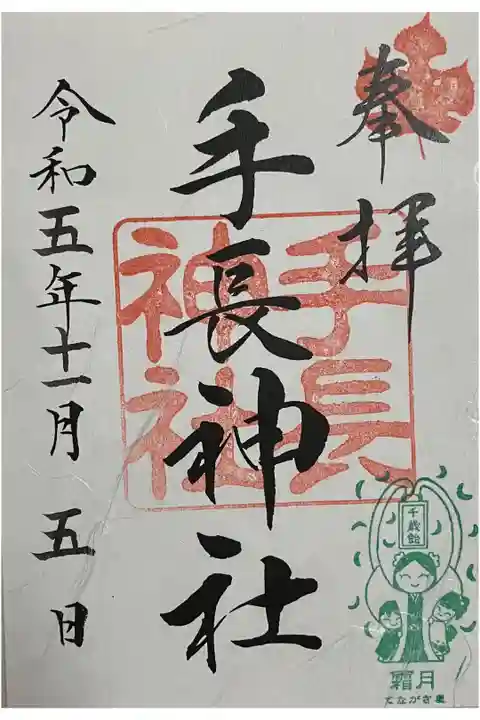 奉拝
手長神社
手長神社
令和五年十一月 五日
千歳飴
霜月
てながさま